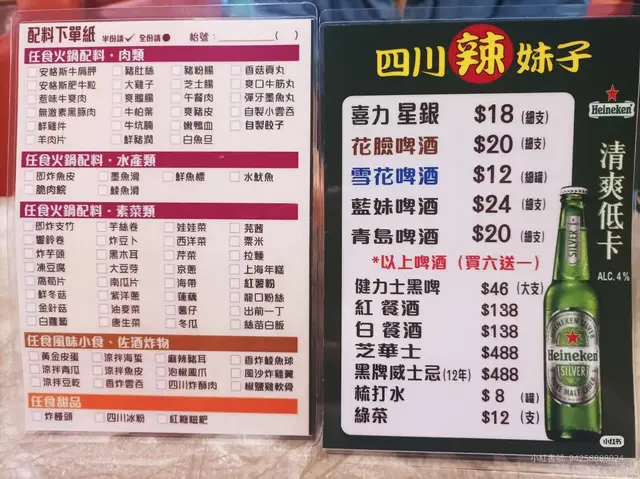 配料下單紙 半份請✓ 全份請● 枱號：_________( )
任食火鍋配料・肉類
安格斯牛肩胛 豬肚絲 豬粉腸 香菇貢丸
安格斯肥牛粒 大雞子 芝士腸 爽口牛筋丸
惹味牛㬹肉 爽鵝腸 午餐肉 彈牙墨魚丸
無激素黑豚肉 牛柏葉 爽豬皮 自製小雲吞
鮮雞件 牛坑腩 嫩鴨血 自製餃子
羊肉片 鮮豬潤 白魚旦
任食火鍋配料・水產類
即炸魚皮 墨魚滑 鮮魚鰾 水魷魚
脆肉鯇 鯪魚滑
任食火鍋配料・素菜類
即炸支竹 芋絲卷 娃娃菜 芫茜
響鈴卷 炸豆卜 西洋菜 粟米
炸芋頭 黑木耳 芹菜 拉麵
凍豆腐 大豆芽 京蔥 上海年糕
萵筍片 南瓜片 海帶 紅薯粉
鮮冬菇 紫洋蔥 蓮藕 龍口粉絲
金針菇 油麥菜 薯仔 出前一丁
白蘿蔔 唐生菜 冬瓜 絲苗白飯
任食風味小食、佐酒炸物
黃金皮蛋 涼拌海蜇 麻辣豬耳 香炸鯪魚球
涼拌青瓜 涼拌魚皮 泡椒鳳爪 風沙炸雞翼
涼拌豆乾 香炸雲吞 四川炸酥肉 椒鹽雞軟骨
任食甜品
炸饅頭 四川冰粉 紅糖糍粑
四川辣妹子
喜力 星銀 $18 (細支)
花臉啤酒 $20 (細支)
雪花啤酒 $12 (細罐)
藍妹啤酒 $24 (細支)
青島啤酒 $20 (細支)
*以上啤酒（買六送一）
健力士黑啤 $46 (大支)
紅 餐酒 $138
白 餐酒 $138
芝華士 $488
黑牌威士忌(12年) $488
梳打水 $ 8 (罐)
綠茶 $12 (支)
Heineken
清爽低卡
ALC. 4%
SILVER
Heineken
SILVER
小红书
小紅書號: 94258888024